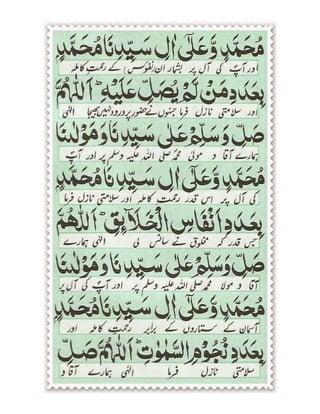 مُحَمَّدٍ وَّعَلٰٓى اٰلِ سَيِّدِنَا مُحَمَّدٍ
اور آپؐ کی آل پر بشمار ان نفوس کے رحمت کاملہ
بِعَدَدِ مَنْ لَّمْ يُصَلِّ عَلَيْهِ ۞ اَللّٰهُمَّ
اور سلامتی نازل فرما جنہوں نے حضور پر درود نہیں بھیجا الٰہی
صَلِّ وَسَلِّمْ عَلٰى سَيِّدِنَا وَمَوْلٰىنَا
ہمارے آقا و مولیٰ محمد صلی اللہ علیہ وسلم پر اور آپؐ
مُحَمَّدٍ وَّعَلٰٓى اٰلِ سَيِّدِنَا مُحَمَّدٍ
کی آل پر اس قدر رحمت کاملہ اور سلامتی نازل فرما
بِعَدَدِ اَنْفَاسِ الْخَلَآئِقِ ۞ اَللّٰهُمَّ
جس قدر کہ مخلوق نے سانس لی الٰہی ہمارے
صَلِّ وَسَلِّمْ عَلٰى سَيِّدِنَا وَمَوْلٰىنَا
آقا و مولا محمد صلی اللہ علیہ وسلم پر اور آپؐ کی آل پر
مُحَمَّدٍ وَّعَلٰٓى اٰلِ سَيِّدِنَا مُحَمَّدٍ
آسمان کے ستاروں کے برابر رحمت کاملہ اور
بِعَدَدِ نُجُوْمِ السَّمٰوٰتِ ۞ اَللّٰهُمَّ صَلِّ
سلامتی نازل فرما الٰہی ہمارے آقا و